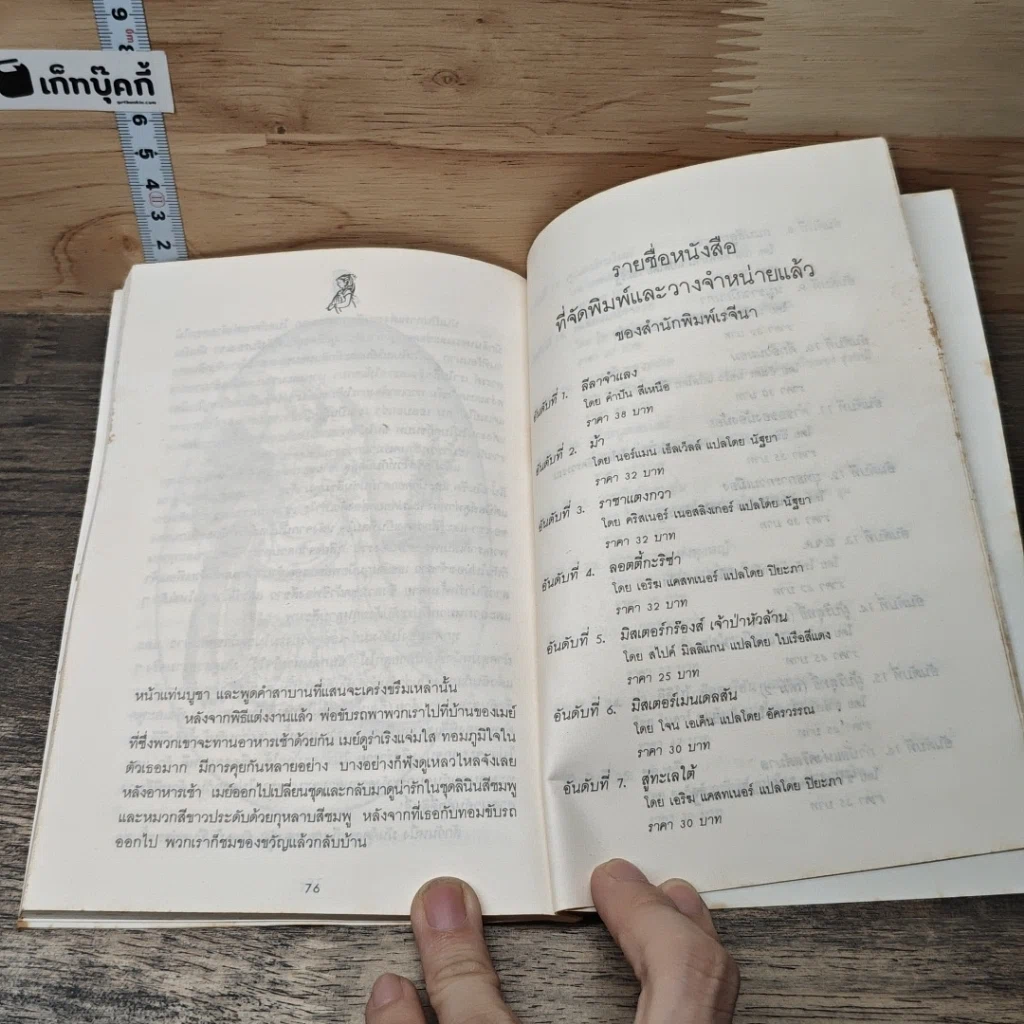 9
เก็ทบุ๊คกี้
6
5
4
3
2
หน้าแท่นบูชา และพูดคำสาบานที่แสนจะเคร่งขรึมเหล่านั้น
หลังจากพิธีแต่งงานแล้ว พ่อขับรถพาพวกเราไปที่บ้านของเมย์
ที่ซึ่งพวกเขาจะทานอาหารเช้าด้วยกัน เมย์ดูร่าเริงแจ่มใส ทอมภูมิใจใน
ตัวเธอมาก มีการคุยกันหลายอย่าง บางอย่างก็ฟังดูเหลวไหลจังเลย
หลังอาหารเช้า เมย์ออกไปเปลี่ยนชุดและกลับมาดูน่ารักในชุดลินินสีชมพู
และหมวกสีขาวประดับด้วยกุหลาบสีชมพู หลังจากที่เธอกับทอมขับรถ
ออกไป พวกเราก็ชมของขวัญแล้วกลับบ้าน
76
รายชื่อหนังสือ
ที่จัดพิมพ์และวางจำหน่ายแล้ว
ของสำนักพิมพ์เรจีนา
อันดับที่ 1. ลีลาจำแลง
โดย คำปัน สีเหนือ
ราคา 38 บาท
อันดับที่ 2. ม้า
โดย นอร์แมน เธ็ลเวิลล์ แปลโดย นัฐยา
ราคา 32 บาท
อันดับที่ 3. ราชาแตงกวา
โดย คริสเนอร์ เนอสลิงเกอร์ แปลโดย นัฐยา
ราคา 32 บาท
อันดับที่ 4. ลอตตี้กะริซ่า
โดย เอริฆ แคสทเนอร์ แปลโดย ปิยะภา
ราคา 32 บาท
อันดับที่ 5. มิสเตอร์กร๊องส์ เจ้าป่าหัวล้าน
โดย สไปค์ มิลลิแกน แปลโดย ใบเรือสีแดง
ราคา 25 บาท
อันดับที่ 6. มิสเตอร์เมนเดลสัน
โดย โจน เอเค็น แปลโดย อัครวรรณ
ราคา 30 บาท
อันดับที่ 7. สู่ทะเลใต้
โดย เอริฆ แคสทเนอร์ แปลโดย ปิยะภา
ราคา 30 บาท